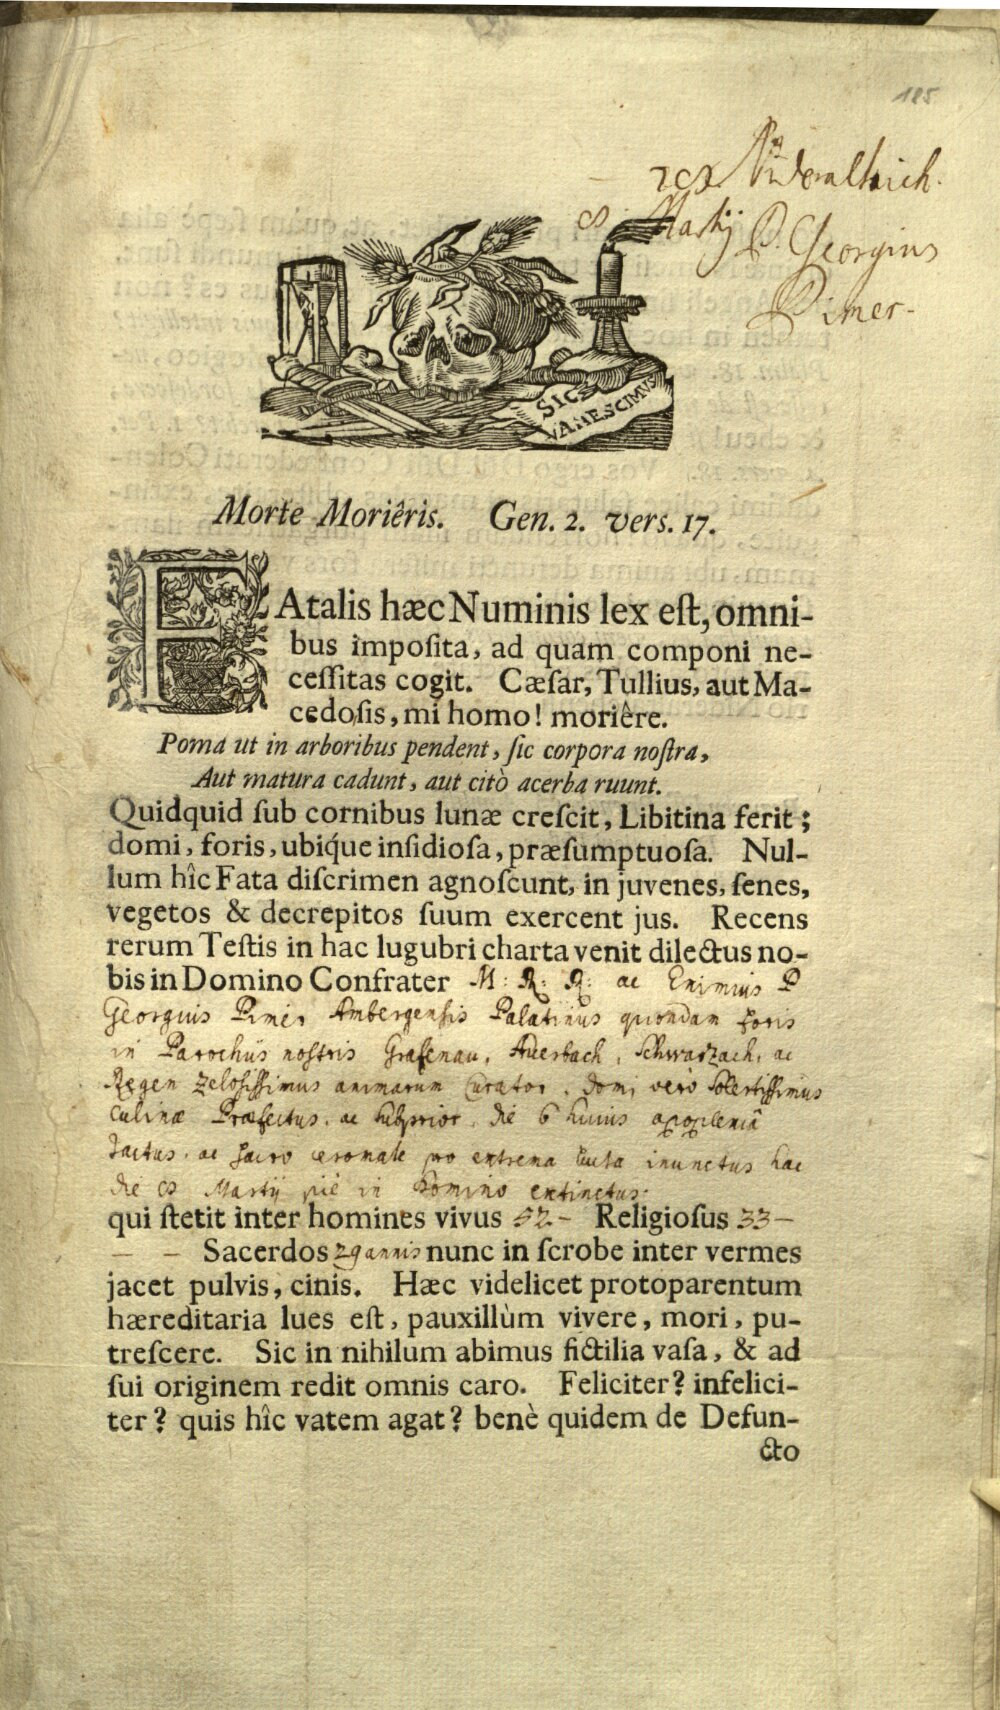 185
Nideraltaich.
8. Martij P. Georgius
Pimer.
SIC
VANESCIMUS
Morte Moriêris. Gen. 2. vers. 17.
FAtalis hæc Numinis lex eſt, omni-
bus impoſita, ad quam componi ne-
ceſſitas cogit. Cæſar, Tullius, aut Ma-
cedoſis, mi homo! moriêre.
Poma ut in arboribus pendent, ſic corpora noſtra,
Aut matura cadunt, aut citò acerba ruunt.
Quidquid ſub cornibus lunæ creſcit, Libitina ferit;
domi, foris, ubiq́ue inſidioſa, præſumptuoſa. Nul-
lum hîc Fata diſcrimen agnoſcunt, in juvenes, ſenes,
vegetos & decrepitos ſuum exercent jus. Recens
rerum Teſtis in hac lugubri charta venit dilectus no-
bis in Domino Confrater M: R: R: ac Eximius P
Georgius Pimer Ambergensis Palatinus quondam foris
in Parochiis nostris Grafenau, Auerbach, Schwarzach, ac
Regen zelosissimus animarum Curator, domi vero Solertissimus
culinæ Præfectus, ac subprior, die 6 huius apoplexiâ
tactus, ac sacro ceromate pro extrema lucta inunctus hac
die 8 Martij pie in Domino extinctus:
qui ſtetit inter homines vivus 52.- Religioſus 33 –
– – Sacerdos 29 annis nunc in ſcrobe inter vermes
jacet pulvis, cinis. Hæc videlicet protoparentum
hæreditaria lues eſt, pauxillùm vivere, mori, pu-
treſcere. Sic in nihilum abimus fictilia vaſa, & ad
ſui originem redit omnis caro. Feliciter? infelici-
ter? quis hîc vatem agat? benè quidem de Defun-
cto